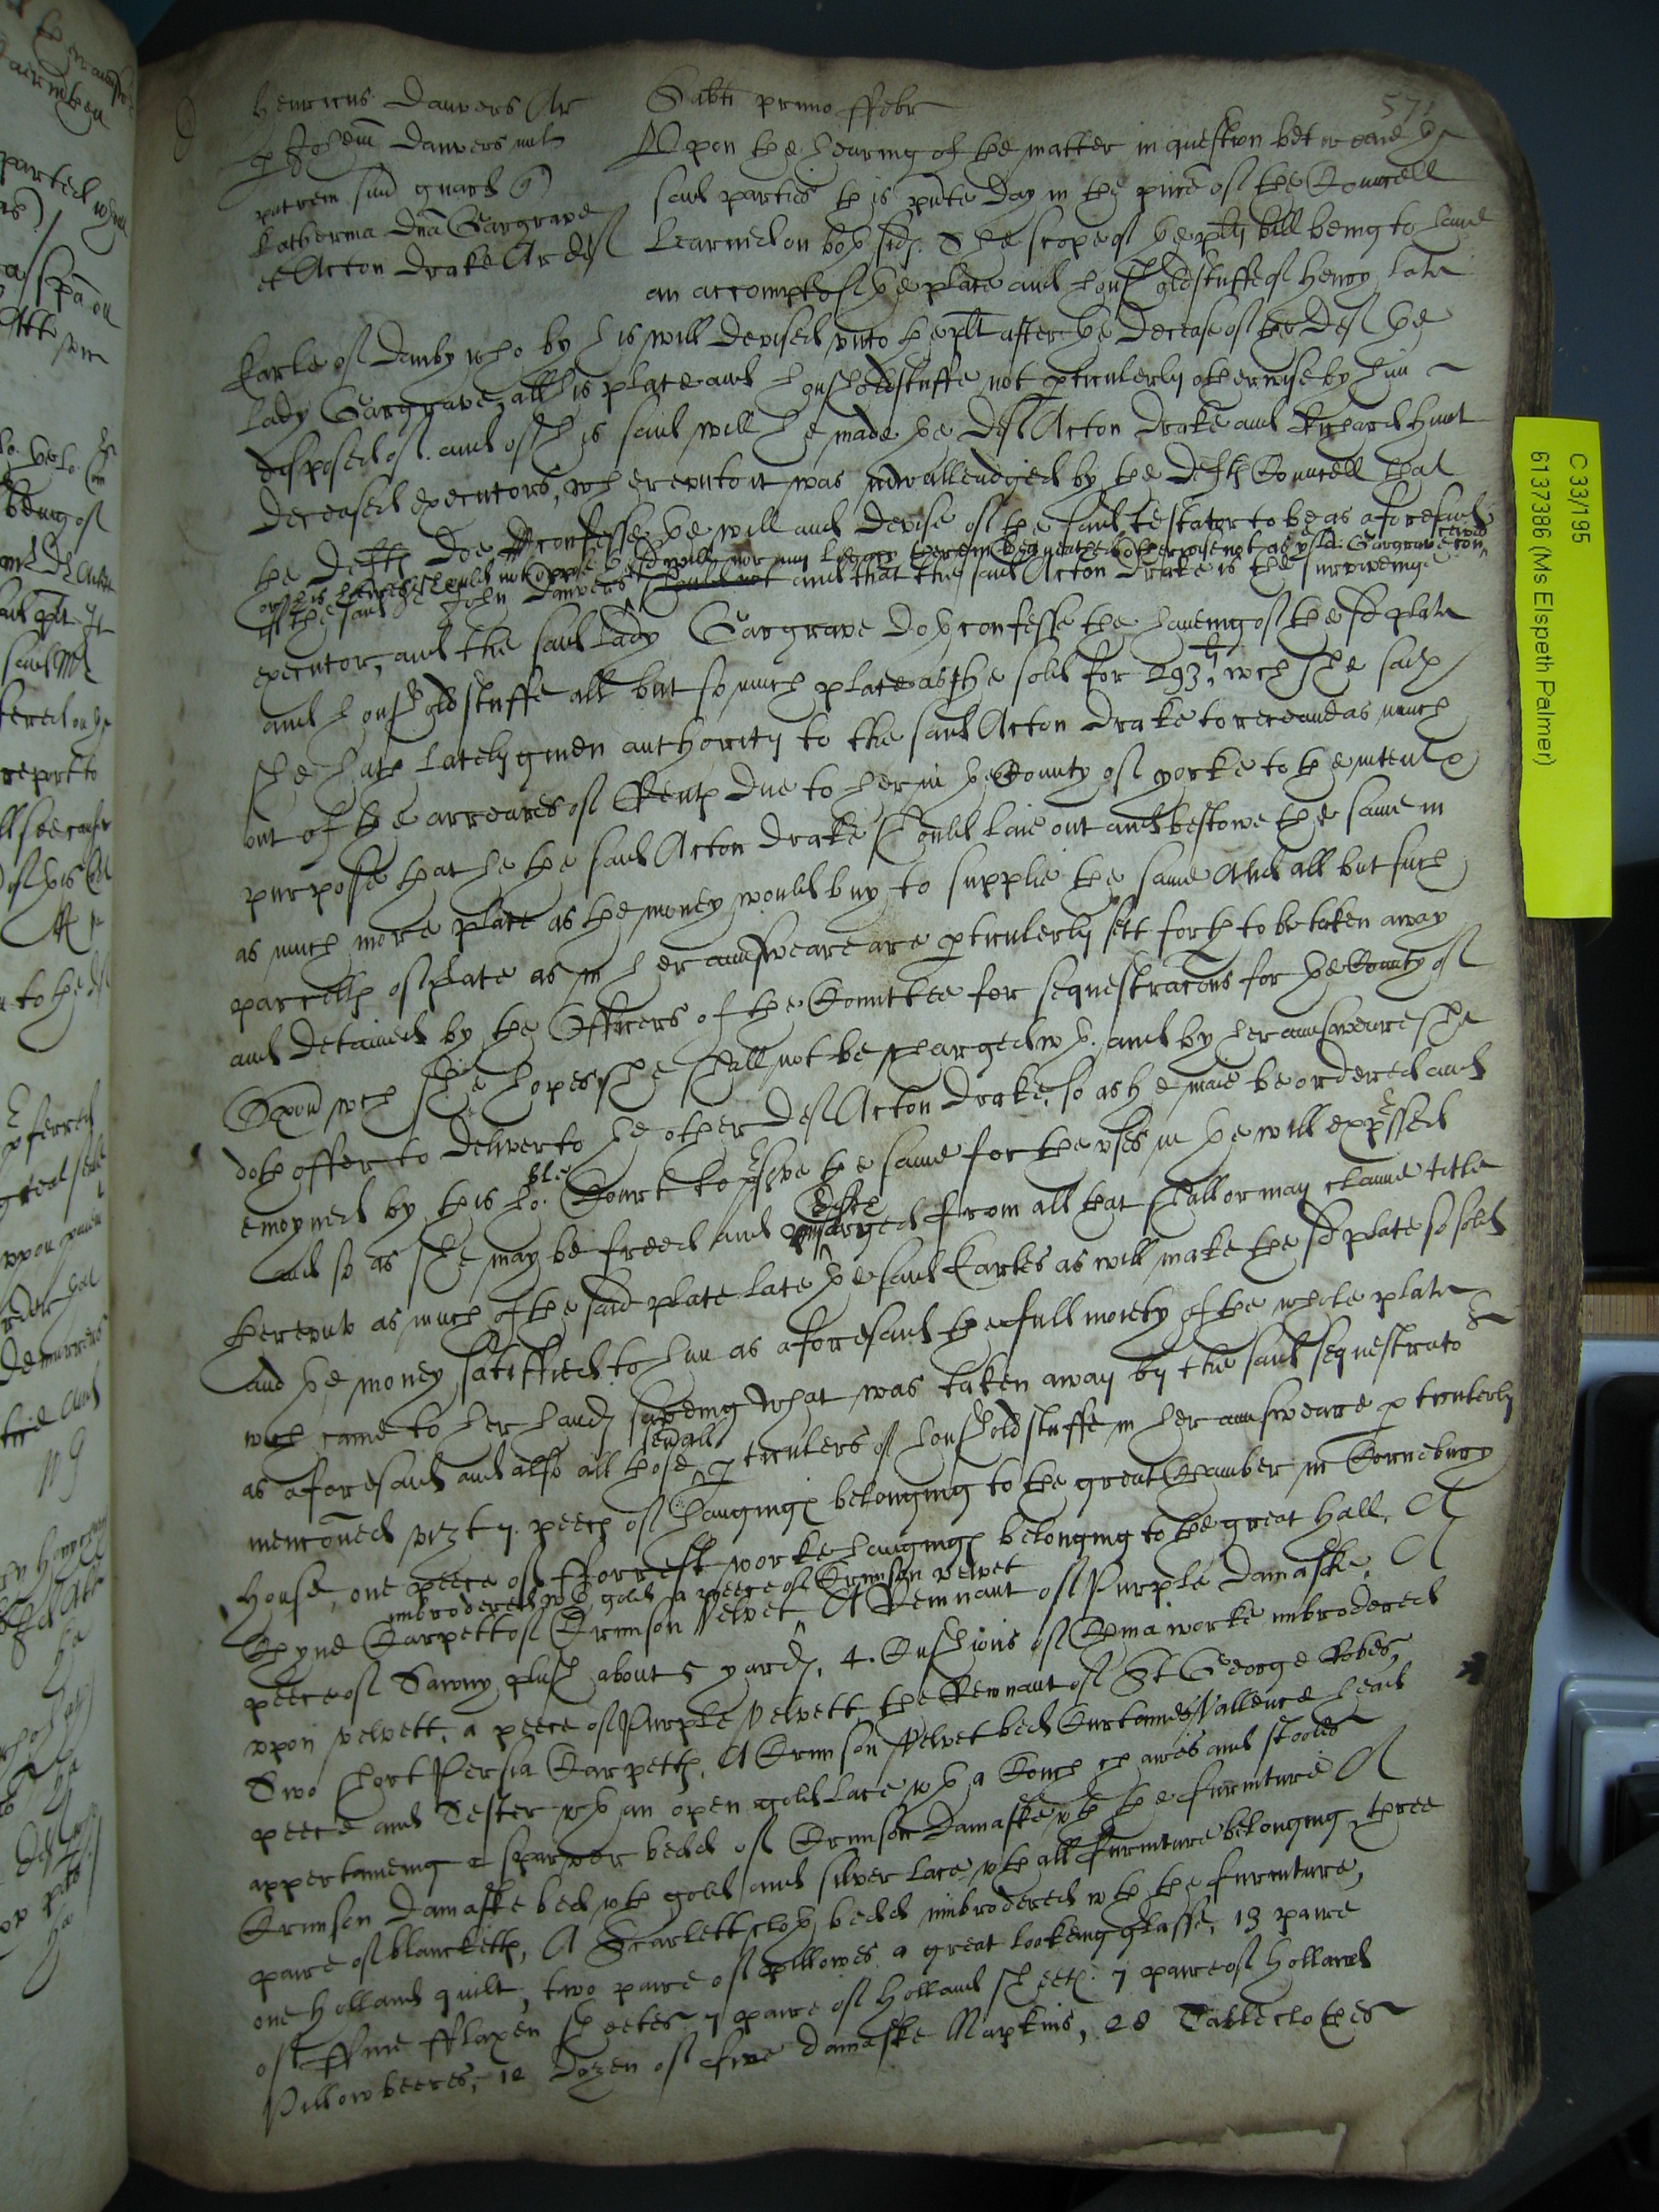 571
Henricus Danvers Ar
p Johem Danvers mil
patrem suu guard
Katherina Dna Gargrave
et Acton Drake Ar def
Sabti primo ffebr
Vpon the hearing of the matter in question betweene ye
said parties this pnte day in the pnce of the Councell
Learned on both sides. The scope of ye plts bill being to have
an accompt of ye plate and houshold stuffe of Henry late
Earle of Danby who by his will devised vnto the plt after ye decease of the Def ye
Lady Gargrave all his plate and houshold stuffe not pticulerly otherwise by him
disposed of. and of his said will he made ye Def Acton Drake and Richard Hunt
deceased executors, wherevnto it was now alleadged by the Defts Councell that
the Defts doe confesse ye will and devise of the said testator to be as aforesaid
if the said Sr John Danvers should not and that the said Acton Drake is the surviveinge
executor, and the said Lady Gargrave doth confesse the haveing of the sd plate
and houshold stuffe all but so much plate as she sold for 293li, wch she saith
she hath lately given authority to the said Acton Drake to receave as much
out of the arreares of Rents due to her in ye County of yorke to the intent &
purpose that he the said Acton Drake should laie out and bestowe the same in
as much more plate as the money would buy to supplie the same And all but such
parcells of plate as in her answeare are pticulerly sett forth to be taken away
and detained by the Officers of the Comittee for sequestracons for ye County of
Oxon wch she hopes she shall not be charged wth. and by her answeare she
doth offer to deliver to ye other Def Acton Drake, so as he maie be ordered and
enioyned by this ho:ble Court to pserve the same for the vses in ye will expressed
and so as she may be freed and discharged from all that shall or may claime title
therevnto as much of the said plate late ye said Earles as will make the sd plate so sold
and ye money satisfied to him as aforesaid the full moiety of the whole plate
wch came to her hands saveing what was taken away by the said sequestrators
as aforesaid and also all those seuall pticulers of houshold stuffe in her answeare pticulerly
menconed vizt 7. peeces of hangings belonging to the great Chamber in Corneburye
House, one peece of fforrest worke hangings belonging to the great Hall, A
imbrodered wth gold a peece of Crimson velvet
Chyne Carpett of Crimson Velvet A Remnant of Purple Damaske, A
peece of Tawny plush about 5 yards, 4. Cushions of China worke imbrodered
vpon velvett, a peece of Purple Velvett the Remnant of St George Robes,
Two short Persia Carpetts, A Crimson Velvet bed Curtaines Vallence head
peece and Tester wth an open gold Lace wth a Couch chaires and stooles
appertaineing a sparver bedd of Crimson Damaske wth the furniture A
Crimson Damaske bed wth gold and silver lace wth all furniture belonging three
paire of blancketts, A Scarlett cloth bedd imbrodered wth the furniture,
one Holland quilt, two paire of pillowes a great lookeing glasse, 13 paire
of ffine fflaxen sheetes 7 paire of Holland sheets. 7 paire of Holland
Pillowbeeres, 12 dozen of fine damaske Napkins, 28 Tableclothes
C 33/195
6137386 (Ms Elspeth Palmer)